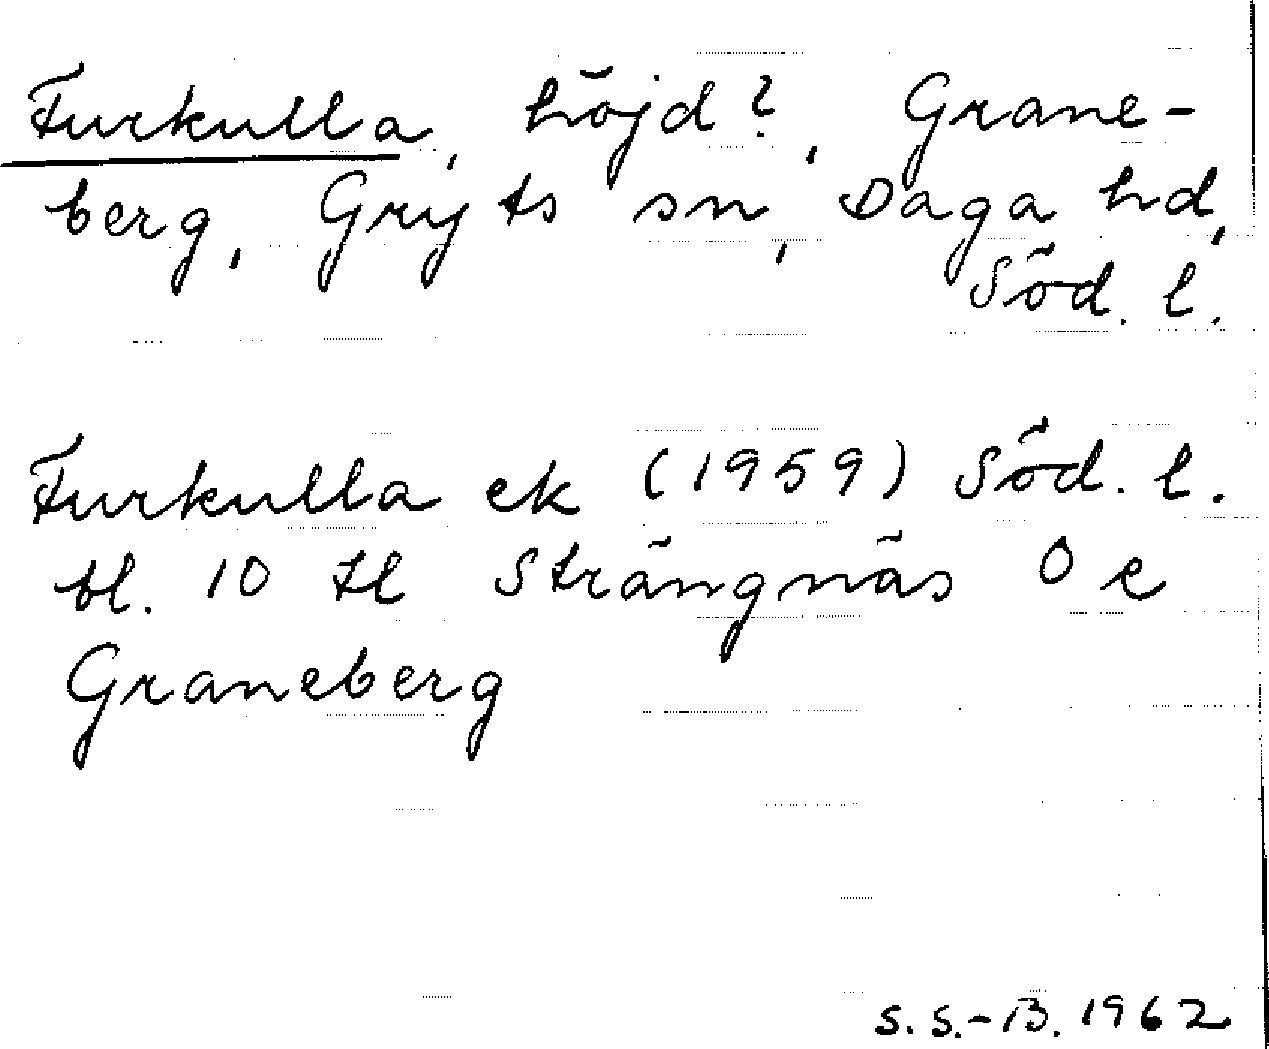 Furkulla, höjd?, Grane-
berg, Gryts sn, Daga hd,
Söd. l.
Furkulla ek (1959) Söd. l.
bl. 10 til Strängnäs O e
Graneberg
S. S.-B. 1962